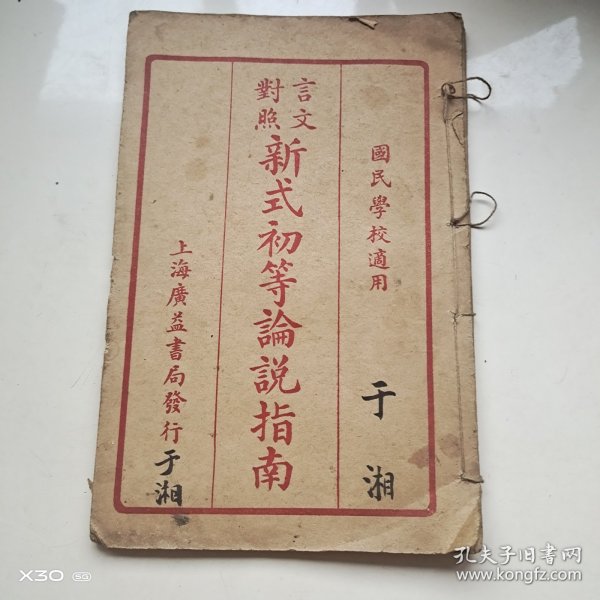 國民學校適用
于湘
言文
對照
新式初等論說指南
上海廣益書局發行
于湘
X30 5G
孔夫子旧书网
www.kongfz.com